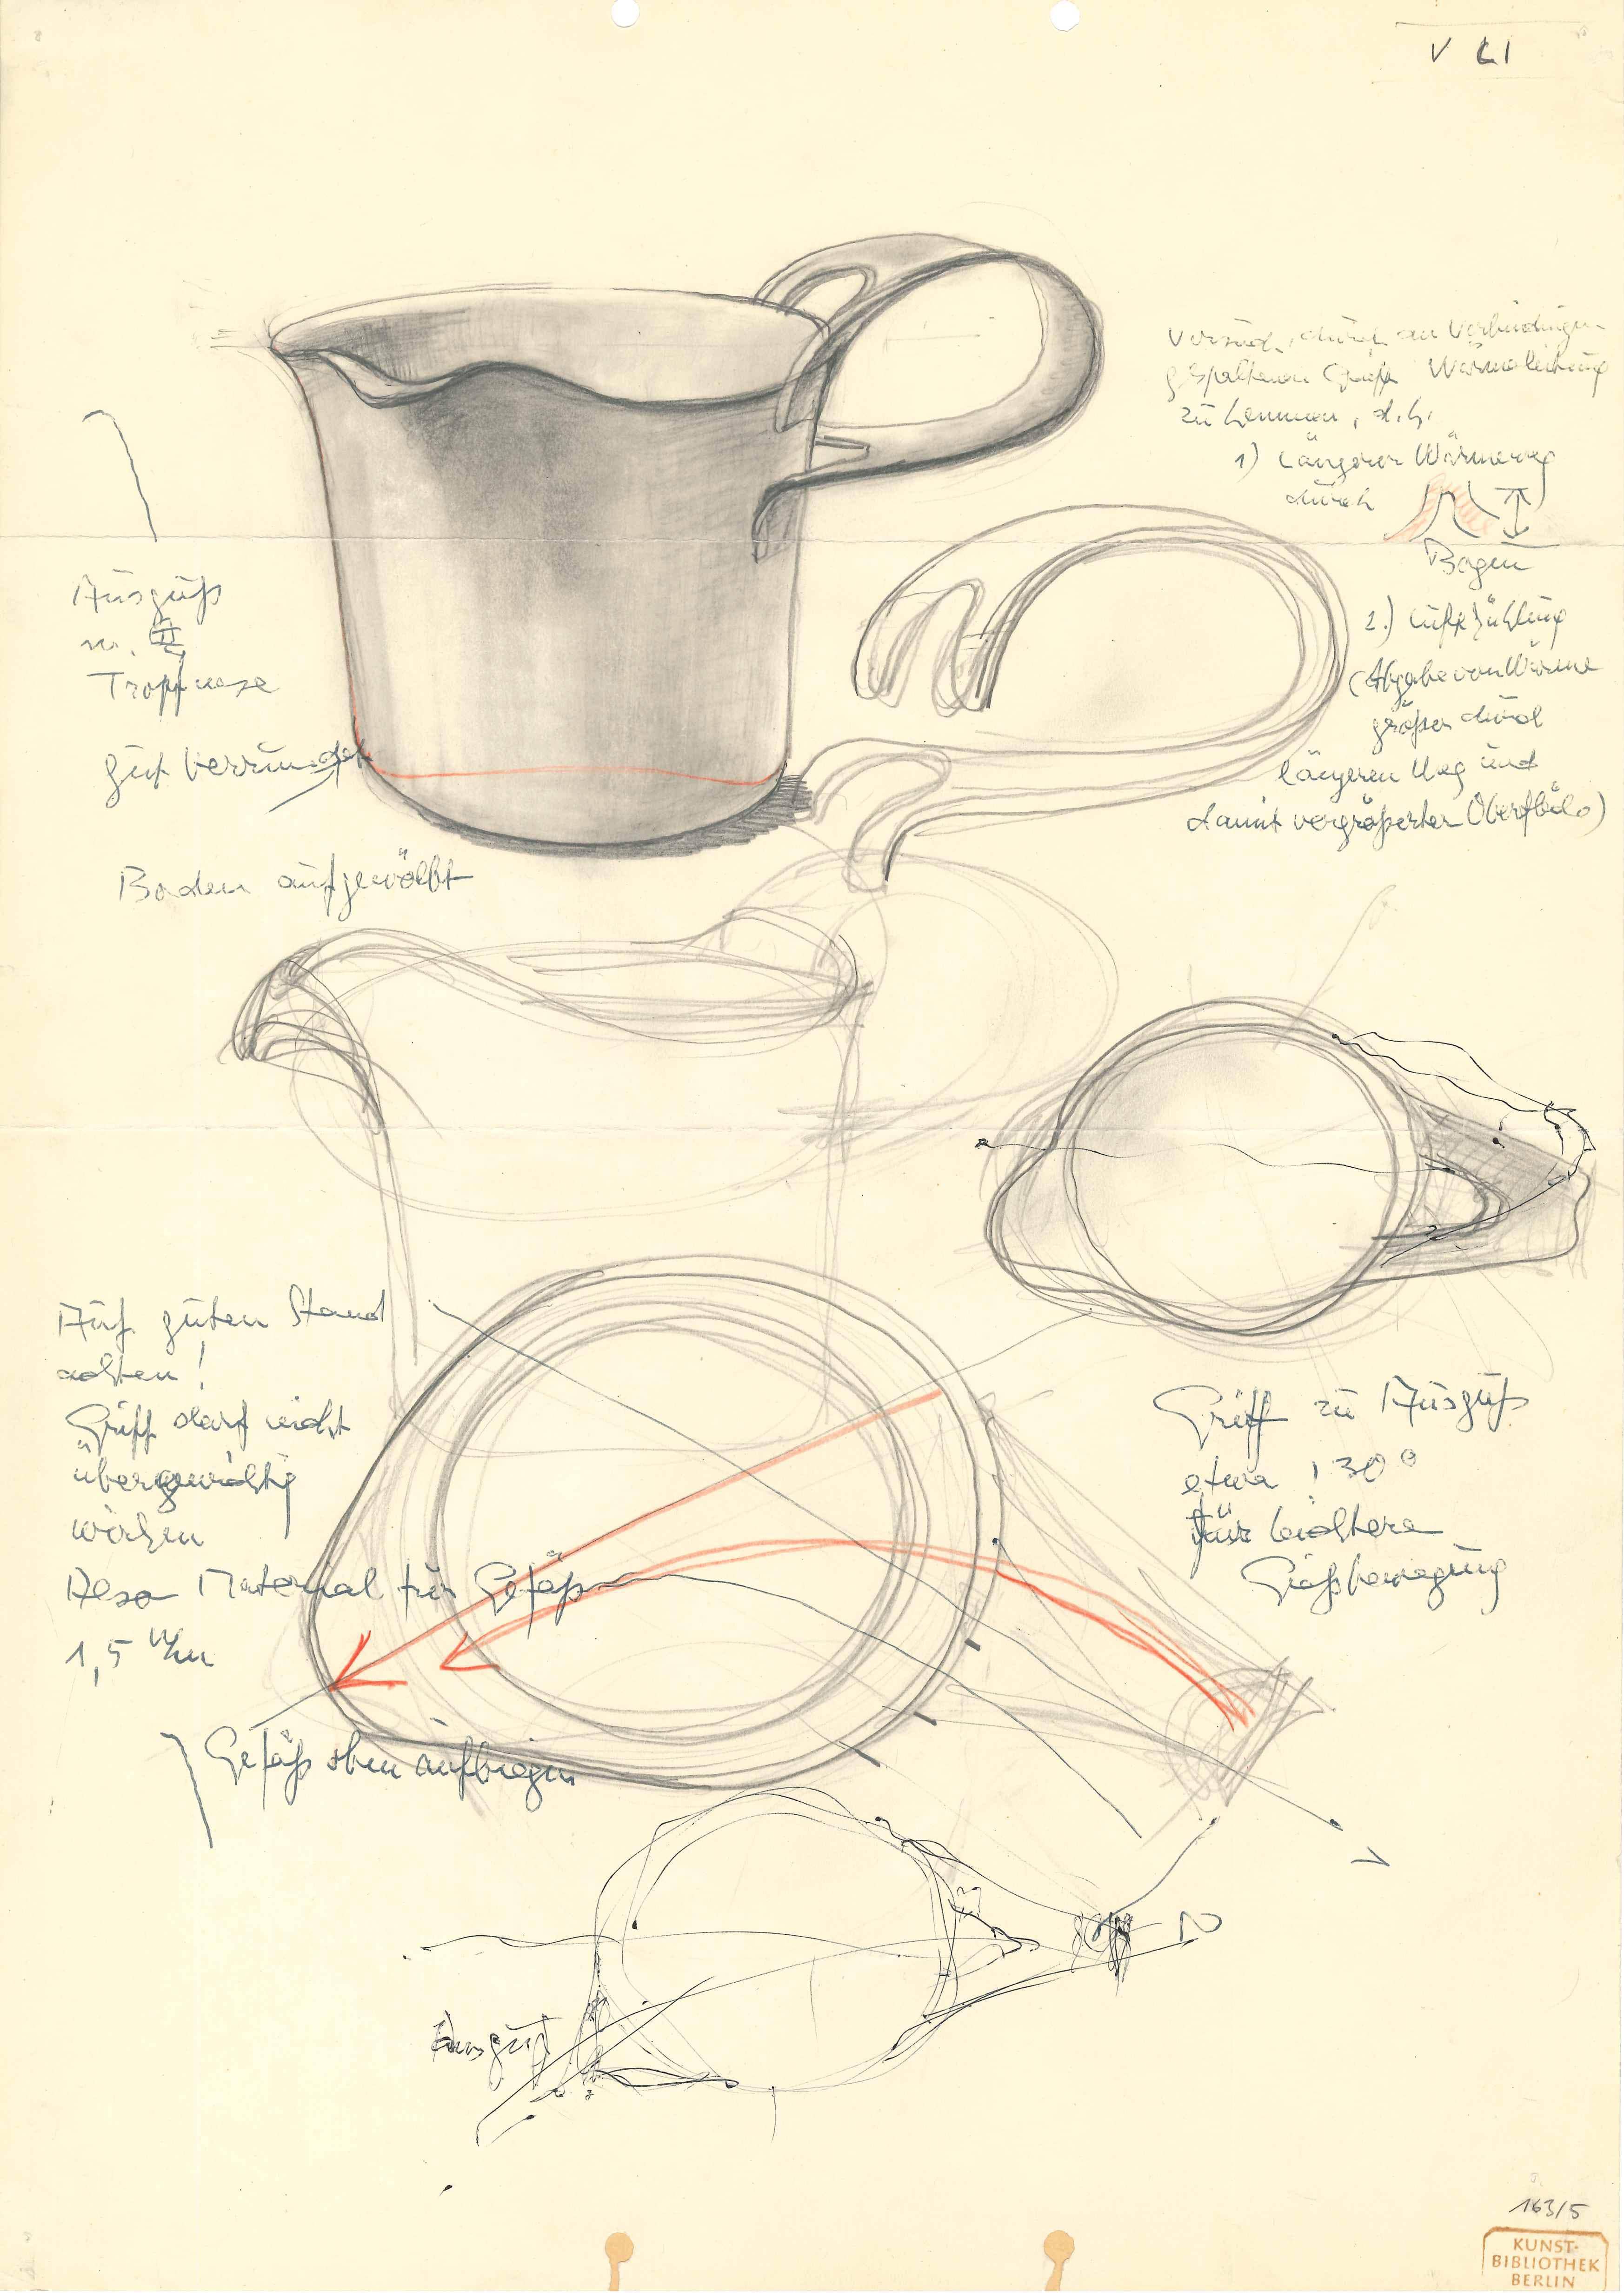 V LI
Versuch, durch an Verbindungen
gespaltenen Griff Wärmeleitung
zu hemmen, d.h.
1) Längerer Wärmeweg
durch
Bogen
2.) Luftkühlung
(Abgabe von Wärme
größer durch
längeren Weg und
damit vergrößerter Oberfläche)
Ausguß
m.
Tropfnase
gut verrundet
Boden aufgewölbt
Auf guten Stand
achten!
Griff darf nicht
übergewichtig
wirken
Also Material für Gefäß
1,5 mm
Gefäß oben aufbiegen
Griff zu Ausguß
etwa ! 30°
für leichtere
Gießbewegung
Ausguß
163/5
KUNST-
BIBLIOTHEK
BERLIN